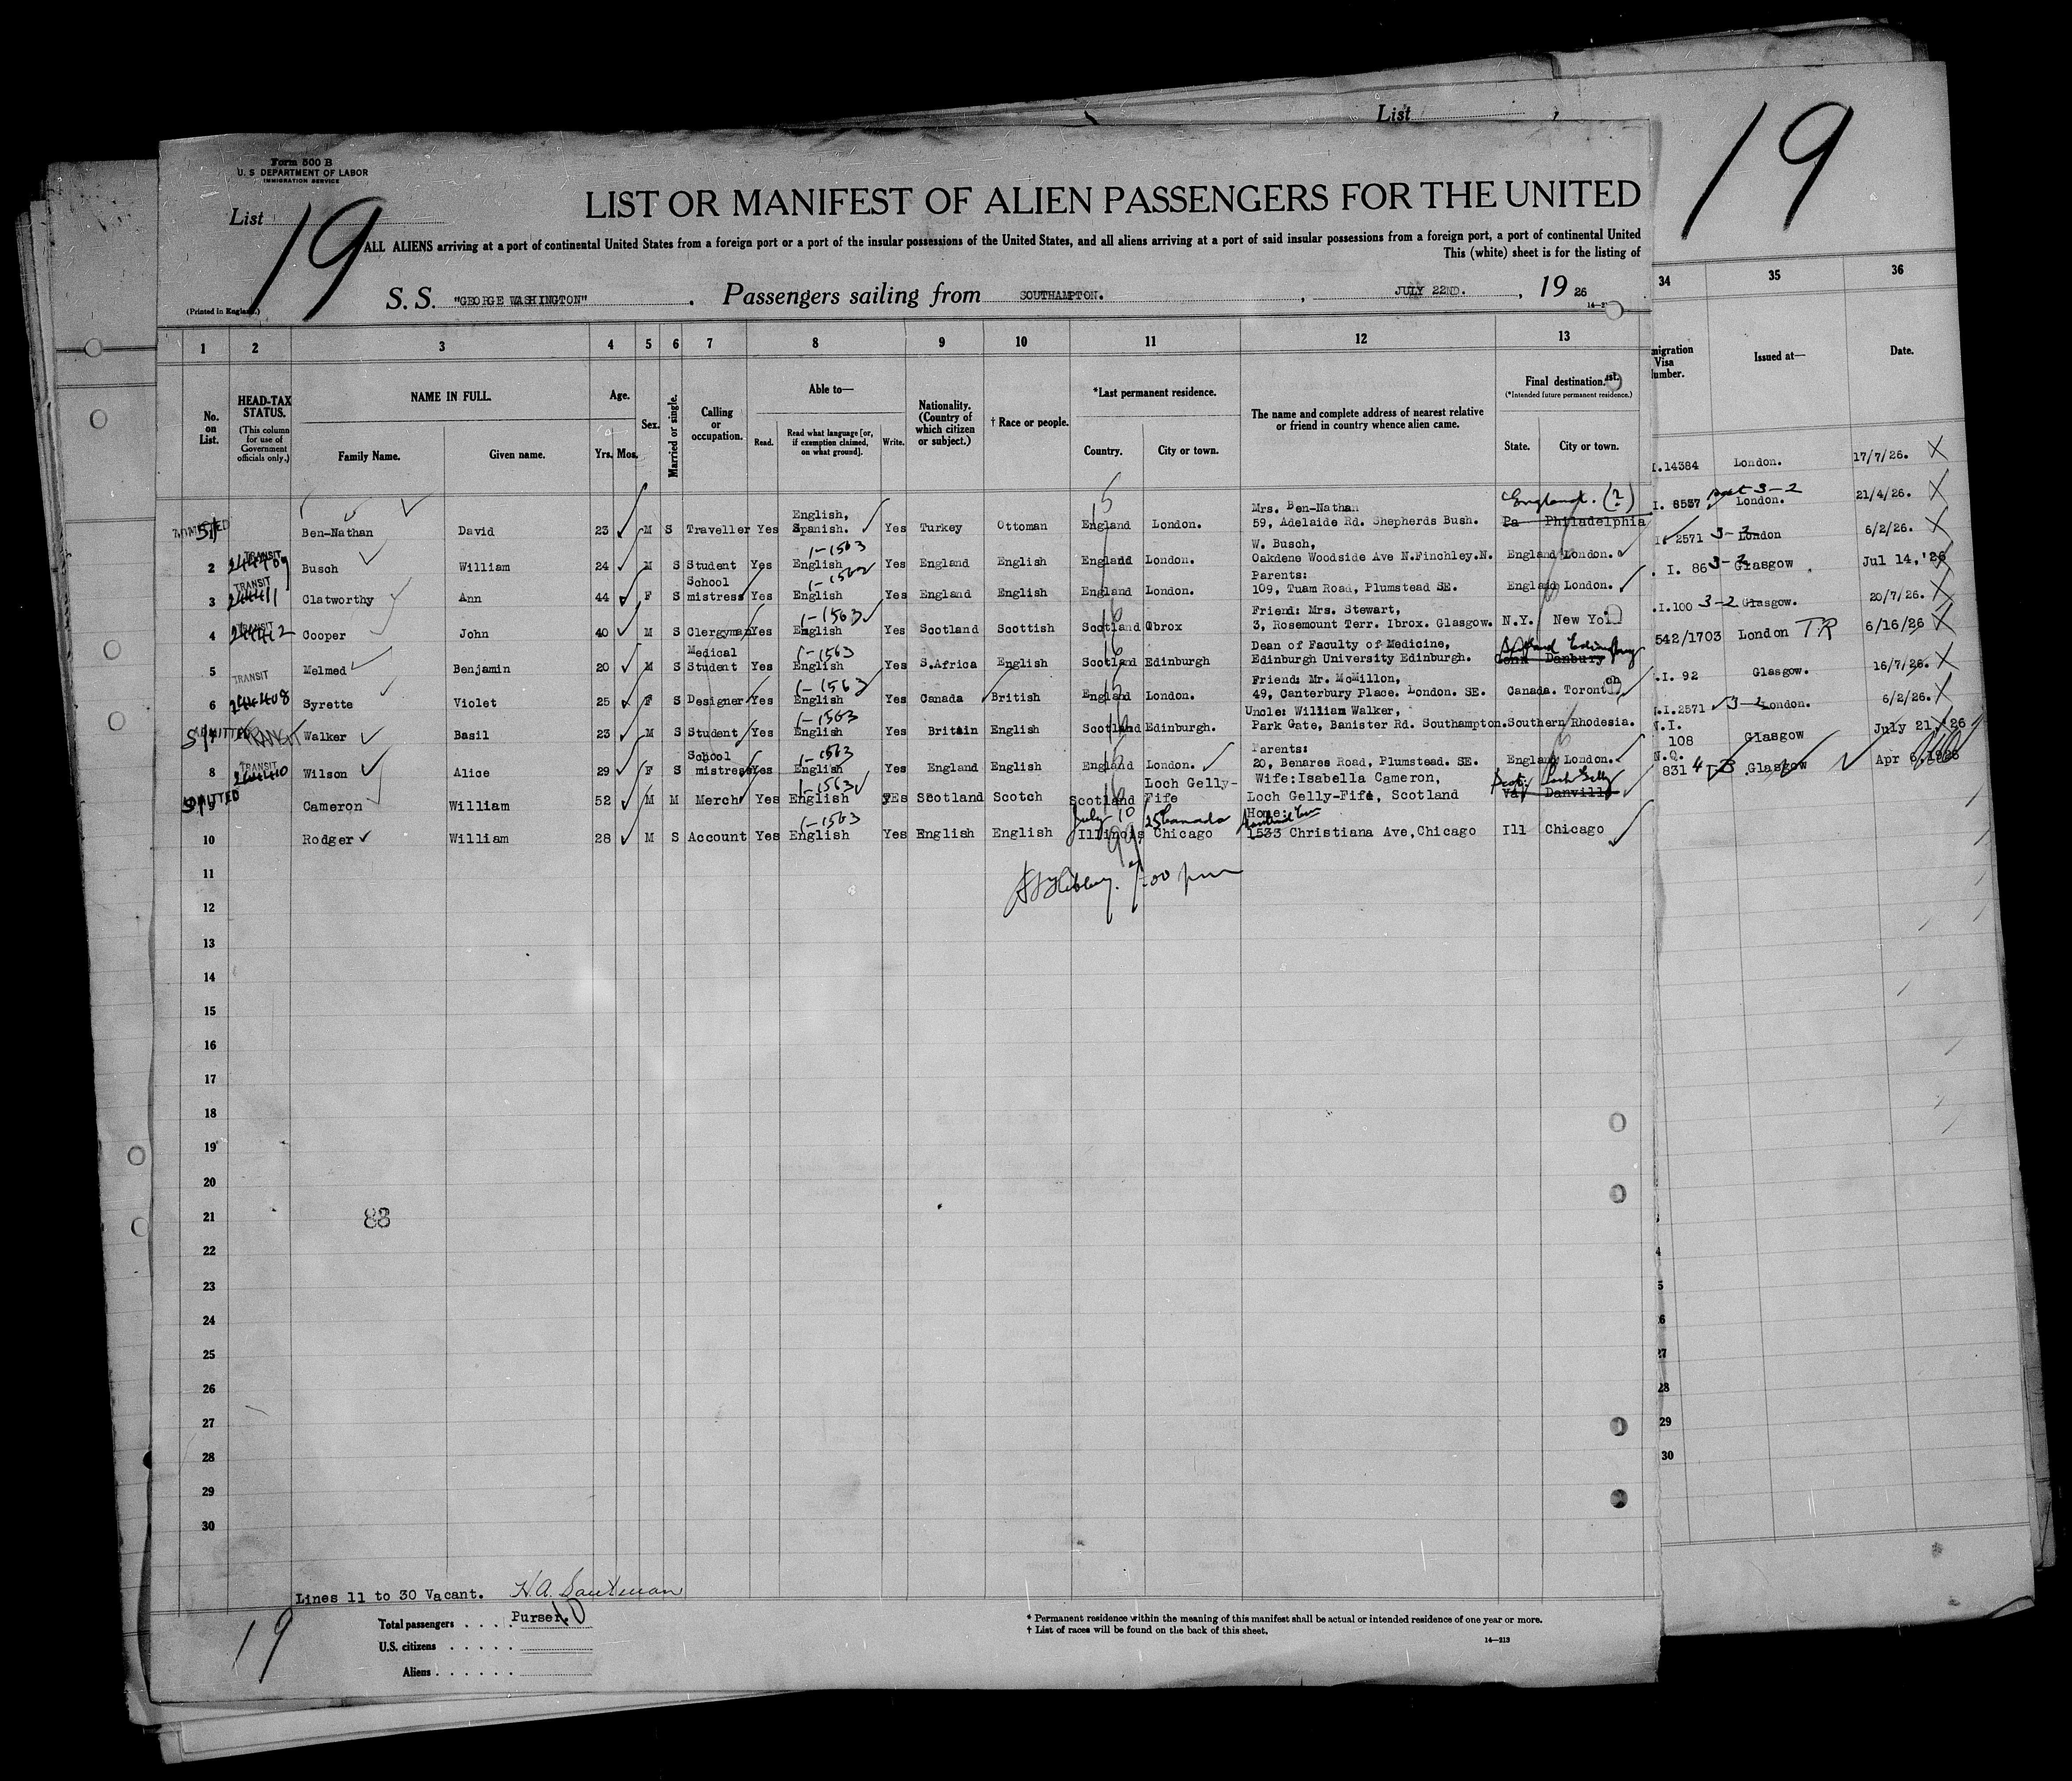 List
19
Form 500 B
U. S. DEPARTMENT OF LABOR
IMMIGRATION SERVICE
List 19
LIST OR MANIFEST OF ALIEN PASSENGERS FOR THE UNITED
ALL ALIENS arriving at a port of continental United States from a foreign port or a port of the insular possessions of the United States, and all aliens arriving at a port of said insular possessions from a foreign port, a port of continental United
This (white) sheet is for the listing of
S. S. "GEORGE WASHINGTON" . Passengers sailing from SOUTHAMPTON. , JULY 22ND. , 19 26
(Printed in England.)
1 2 3 4 5 6 7 8 9 10 11 12 13
34 35 36
No. on List.
HEAD-TAX STATUS.
(This column for use of Government officials only.)
NAME IN FULL.
Family Name. Given name.
Age.
Yrs. Mos.
Sex.
Married or single.
Calling or occupation.
Able to—
Read. Read what language [or, if exemption claimed, on what ground]. Write.
Nationality. (Country of which citizen or subject.)
† Race or people.
*Last permanent residence.
Country. City or town.
The name and complete address of nearest relative or friend in country whence alien came.
Final destination.
(*Intended future permanent residence.)
State. City or town.
migration Visa Number.
Issued at—
Date.
ADMITTED Ben-Nathan David 23 M S Traveller Yes English, Spanish. Yes Turkey Ottoman England London. Mrs. Ben-Nathan 59, Adelaide Rd. Shepherds Bush. Pa Philadelphia England. (?)
2 TRANSIT Busch William 24 M S Student Yes English 1-1563 Yes England English England London. W. Busch, Oakdene Woodside Ave N.Finchley.N. England London.
3 TRANSIT Clatworthy Ann 44 F S School mistress Yes English Yes England English England London. Parents: 109, Tuam Road, Plumstead SE. England London.
4 TRANSIT Cooper John 40 M S Clergyman Yes English 1-1563 Yes Scotland Scottish Scotland Ibrox Friend: Mrs. Stewart, 3, Rosemount Terr. Ibrox. Glasgow. N.Y. New Yo
5 Melmed Benjamin 20 M S Medical Student Yes English 1-1563 Yes S.Africa English Scotland Edinburgh Dean of Faculty of Medicine, Edinburgh University Edinburgh. Conn Danbury
6 TRANSIT Syrette Violet 25 F S Designer Yes English 1-1563 Yes Canada British England London. Friend: Mr. McMillon, 49, Canterbury Place. London. SE. Canada. Toronto
ADMITTED TRANSIT Walker Basil 23 M S Student Yes English 1-1563 Yes Britain English Scotland Edinburgh. Uncle: William Walker, Park Gate, Banister Rd. Southampton. Southern Rhodesia.
8 TRANSIT Wilson Alice 29 F S School mistress Yes English 1-1563 Yes England English England London. Parents: 20, Benares Road, Plumstead. SE. England London.
ADMITTED Cameron William 52 M M Merch Yes English 1-1563 yEs Scotland Scotch Scotland Loch Gelly-Fife Wife:Isabella Cameron, Loch Gelly-Fife, Scotland Va. Danville Scot. Loch Gelly
10 Rodger William 28 M S Account Yes English 1-1563 Yes English English Illinois Chicago Home: 1533 Christiana Ave,Chicago Ill Chicago
July 10 25 Canada
7:00 pm
I.14384 London. 17/7/26.
I. 8537 London. 21/4/26.
I. 2571 3-2 London 6/2/26.
I. 86 3-2 Glasgow Jul 14,'26
.I.100 3-2 Glasgow. 20/7/26.
542/1703 London TR 6/16/26
.I. 92 Glasgow. 16/7/26.
.I.2571 3-2 London. 6/2/26.
N.I. 108 Glasgow July 21,'26
N.Q. 831 Glasgow Apr 6,1926
11
12
13
14
15
16
17
18
19
20
21
88
22
23
24
25
26
27
28
29
30
27
28
29
30
Lines 11 to 30 Vacant.
Purser.
19
Total passengers . . . . 10
U.S. citizens . . . . .
Aliens . . . . . .
* Permanent residence within the meaning of this manifest shall be actual or intended residence of one year or more.
† List of races will be found on the back of this sheet.
14—213